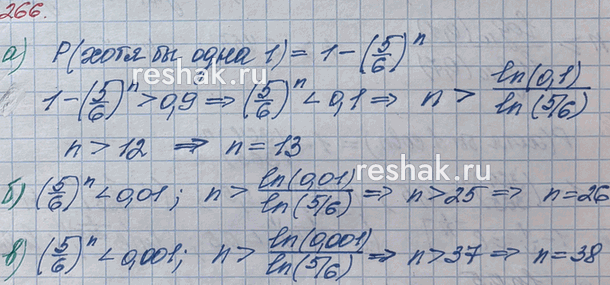 266.
а) P(хотя бы одна 1) = 1 - (5/6)^n
reshak.ru
1 - (5/6)^n > 0,9 ⇒ (5/6)^n < 0,1 ⇒ n > ln(0,1)/ln(5/6)
n > 12 ⇒ n = 13
reshak.ru
б) (5/6)^n < 0,01; n > ln(0,01)/ln(5/6) ⇒ n > 25 ⇒ n = 26
в) (5/6)^n < 0,001; n > ln(0,001)/ln(5/6) ⇒ n > 37 ⇒ n = 38
reshak.ru